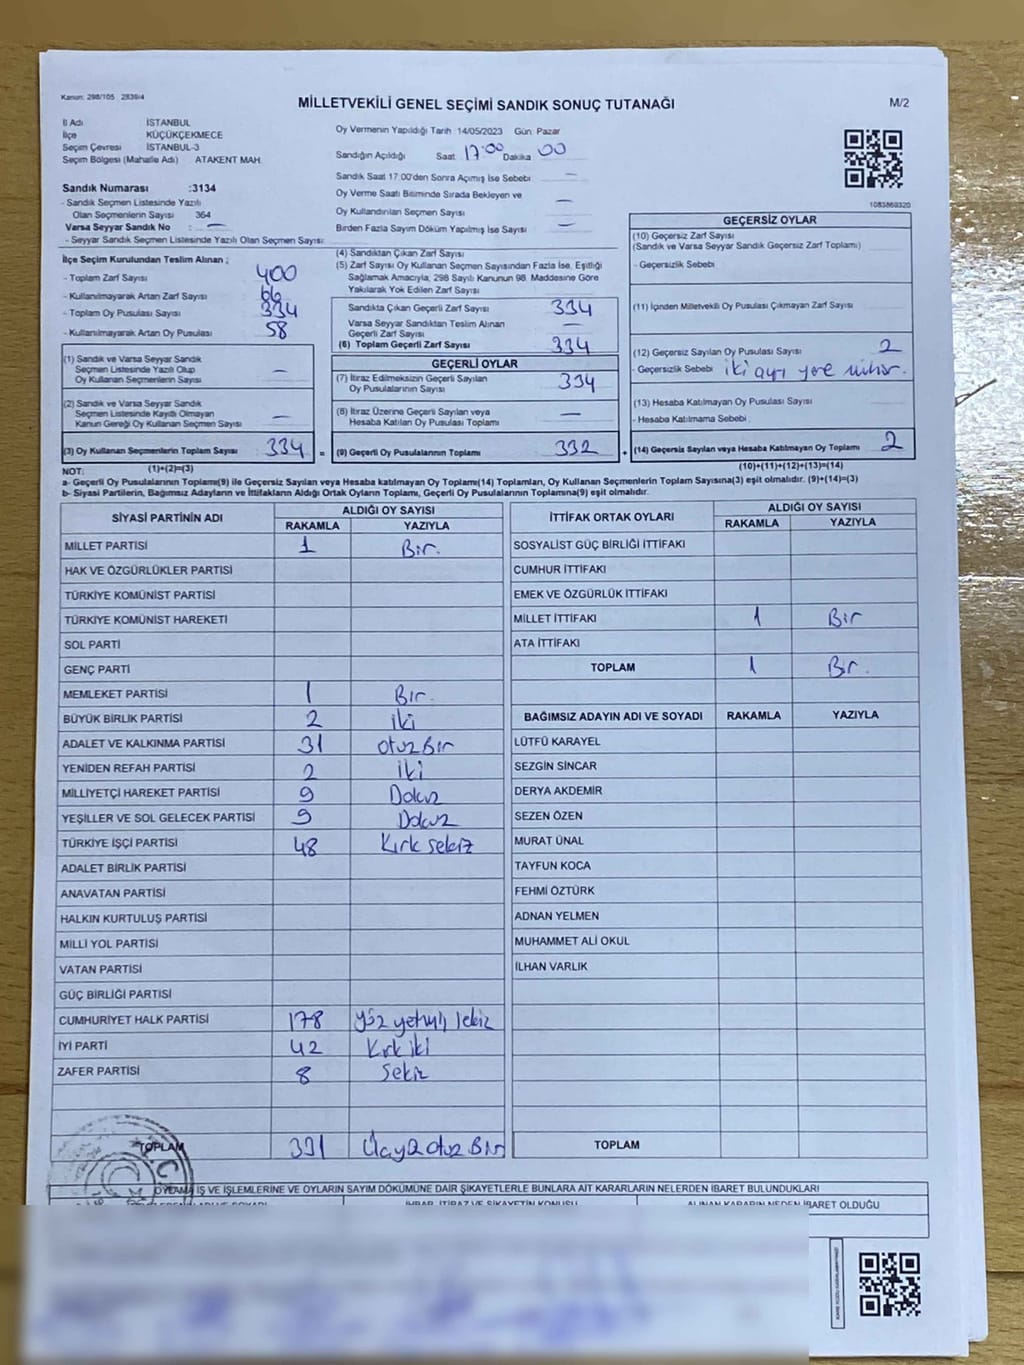 Kanun: 298/105 2839/4
MİLLETVEKİLİ GENEL SEÇİMİ SANDIK SONUÇ TUTANAĞI
M/2
İl Adı İSTANBUL
İlçe KÜÇÜKÇEKMECE
Seçim Çevresi İSTANBUL-3
Seçim Bölgesi (Mahalle Adı) ATAKENT MAH.
Sandık Numarası :3134
- Sandık Seçmen Listesinde Yazılı
Olan Seçmenlerin Sayısı 364
Varsa Seyyar Sandık No : —
- Seyyar Sandık Seçmen Listesinde Yazılı Olan Seçmen Sayısı:
İlçe Seçim Kurulundan Teslim Alınan ;
- Toplam Zarf Sayısı 400
- Kullanılmayarak Artan Zarf Sayısı 66
- Toplam Oy Pusulası Sayısı 334
- Kullanılmayarak Artan Oy Pusulası 58
(1) Sandık ve Varsa Seyyar Sandık
Seçmen Listesinde Yazılı Olup
Oy Kullanan Seçmenlerin Sayısı —
(2) Sandık ve Varsa Seyyar Sandık
Seçmen Listesinde Kayıtlı Olmayan
Kanun Gereği Oy Kullanan Seçmen Sayısı —
(3) Oy Kullanan Seçmenlerin Toplam Sayısı 334 =
(1)+(2)=(3)
Oy Vermenin Yapıldığı Tarih 14/05/2023 Gün: Pazar
Sandığın Açıldığı Saat 17:00 Dakika 00
Sandık Saat 17.00'den Sonra Açımış İse Sebebi —
Oy Verme Saati Bitiminde Sırada Bekleyen ve
Oy Kullandırılan Seçmen Sayısı —
Birden Fazla Sayım Döküm Yapılmış İse Sayısı —
(4) Sandıktan Çıkan Zarf Sayısı
(5) Zarf Sayısı Oy Kullanan Seçmen Sayısından Fazla İse, Eşitliği
Sağlamak Amacıyla, 298 Sayılı Kanunun 98. Maddesine Göre
Yakılarak Yok Edilen Zarf Sayısı
Sandıkta Çıkan Geçerli Zarf Sayısı 334
Varsa Seyyar Sandıktan Teslim Alınan
Geçerli Zarf Sayısı —
(6) Toplam Geçerli Zarf Sayısı 334
GEÇERLİ OYLAR
(7) İtiraz Edilmeksizin Geçerli Sayılan
Oy Pusulalarının Sayısı 334
(8) İtiraz Üzerine Geçerli Sayılan veya
Hesaba Katılan Oy Pusulası Toplamı —
(9) Geçerli Oy Pusulalarının Toplamı 332 +
1083869320
GEÇERSİZ OYLAR
(10) Geçersiz Zarf Sayısı
(Sandık ve Varsa Seyyar Sandık Geçersiz Zarf Toplamı)
- Geçersizlik Sebebi
(11) İçinden Milletvekili Oy Pusulası Çıkmayan Zarf Sayısı
(12) Geçersiz Sayılan Oy Pusulası Sayısı 2
- Geçersizlik Sebebi iki ayrı yere mühür.
(13) Hesaba Katılmayan Oy Pusulası Sayısı
- Hesaba Katılmama Sebebi
(14) Geçersiz Sayılan veya Hesaba Katılmayan Oy Toplamı 2
(10)+(11)+(12)+(13)=(14)
NOT:
a- Geçerli Oy Pusulalarının Toplamı(9) ile Geçersiz Sayılan veya Hesaba katılmayan Oy Toplamı(14) Toplamları, Oy Kullanan Seçmenlerin Toplam Sayısına(3) eşit olmalıdır. (9)+(14)=(3)
b- Siyasi Partilerin, Bağımsız Adayların ve İttifakların Aldığı Ortak Oyların Toplamı, Geçerli Oy Pusulalarının Toplamına(9) eşit olmalıdır.
SİYASİ PARTİNİN ADI ALDIĞI OY SAYISI
RAKAMLA YAZIYLA
MİLLET PARTİSİ 1 Bir.
HAK VE ÖZGÜRLÜKLER PARTİSİ
TÜRKİYE KOMÜNİST PARTİSİ
TÜRKİYE KOMÜNİST HAREKETİ
SOL PARTİ
GENÇ PARTİ
MEMLEKET PARTİSİ 1 Bir.
BÜYÜK BİRLİK PARTİSİ 2 iki
ADALET VE KALKINMA PARTİSİ 31 otuz Bir
YENİDEN REFAH PARTİSİ 2 İki
MİLLİYETÇİ HAREKET PARTİSİ 9 Dokuz
YEŞİLLER VE SOL GELECEK PARTİSİ 9 Dokuz
TÜRKİYE İŞÇİ PARTİSİ 48 Kırk sekiz
ADALET BİRLİK PARTİSİ
ANAVATAN PARTİSİ
HALKIN KURTULUŞ PARTİSİ
MİLLİ YOL PARTİSİ
VATAN PARTİSİ
GÜÇ BİRLİĞİ PARTİSİ
CUMHURİYET HALK PARTİSİ 178 Yüz yetmiş sekiz
İYİ PARTİ 42 Kırk iki
ZAFER PARTİSİ 8 Sekiz
TOPLAM 331 Üçyüz otuz Bir
İTTİFAK ORTAK OYLARI ALDIĞI OY SAYISI
RAKAMLA YAZIYLA
SOSYALİST GÜÇ BİRLİĞİ İTTİFAKI
CUMHUR İTTİFAKI
EMEK VE ÖZGÜRLÜK İTTİFAKI
MİLLET İTTİFAKI 1 Bir
ATA İTTİFAKI
TOPLAM 1 Bir.
BAĞIMSIZ ADAYIN ADI VE SOYADI RAKAMLA YAZIYLA
LÜTFÜ KARAYEL
SEZGİN SİNCAR
DERYA AKDEMİR
SEZEN ÖZEN
MURAT ÜNAL
TAYFUN KOCA
FEHMİ ÖZTÜRK
ADNAN YELMEN
MUHAMMET ALİ OKUL
İLHAN VARLIK
TOPLAM
OYLAMA İŞ VE İŞLEMLERİNE VE OYLARIN SAYIM DÖKÜMÜNE DAİR ŞİKAYETLERLE BUNLARA AİT KARARLARIN NELERDEN İBARET BULUNDUKLARI
İHBAR, İTİRAZ VE ŞİKAYETİN KONUSU
ALINAN KARARIN NEDEN İBARET OLDUĞU